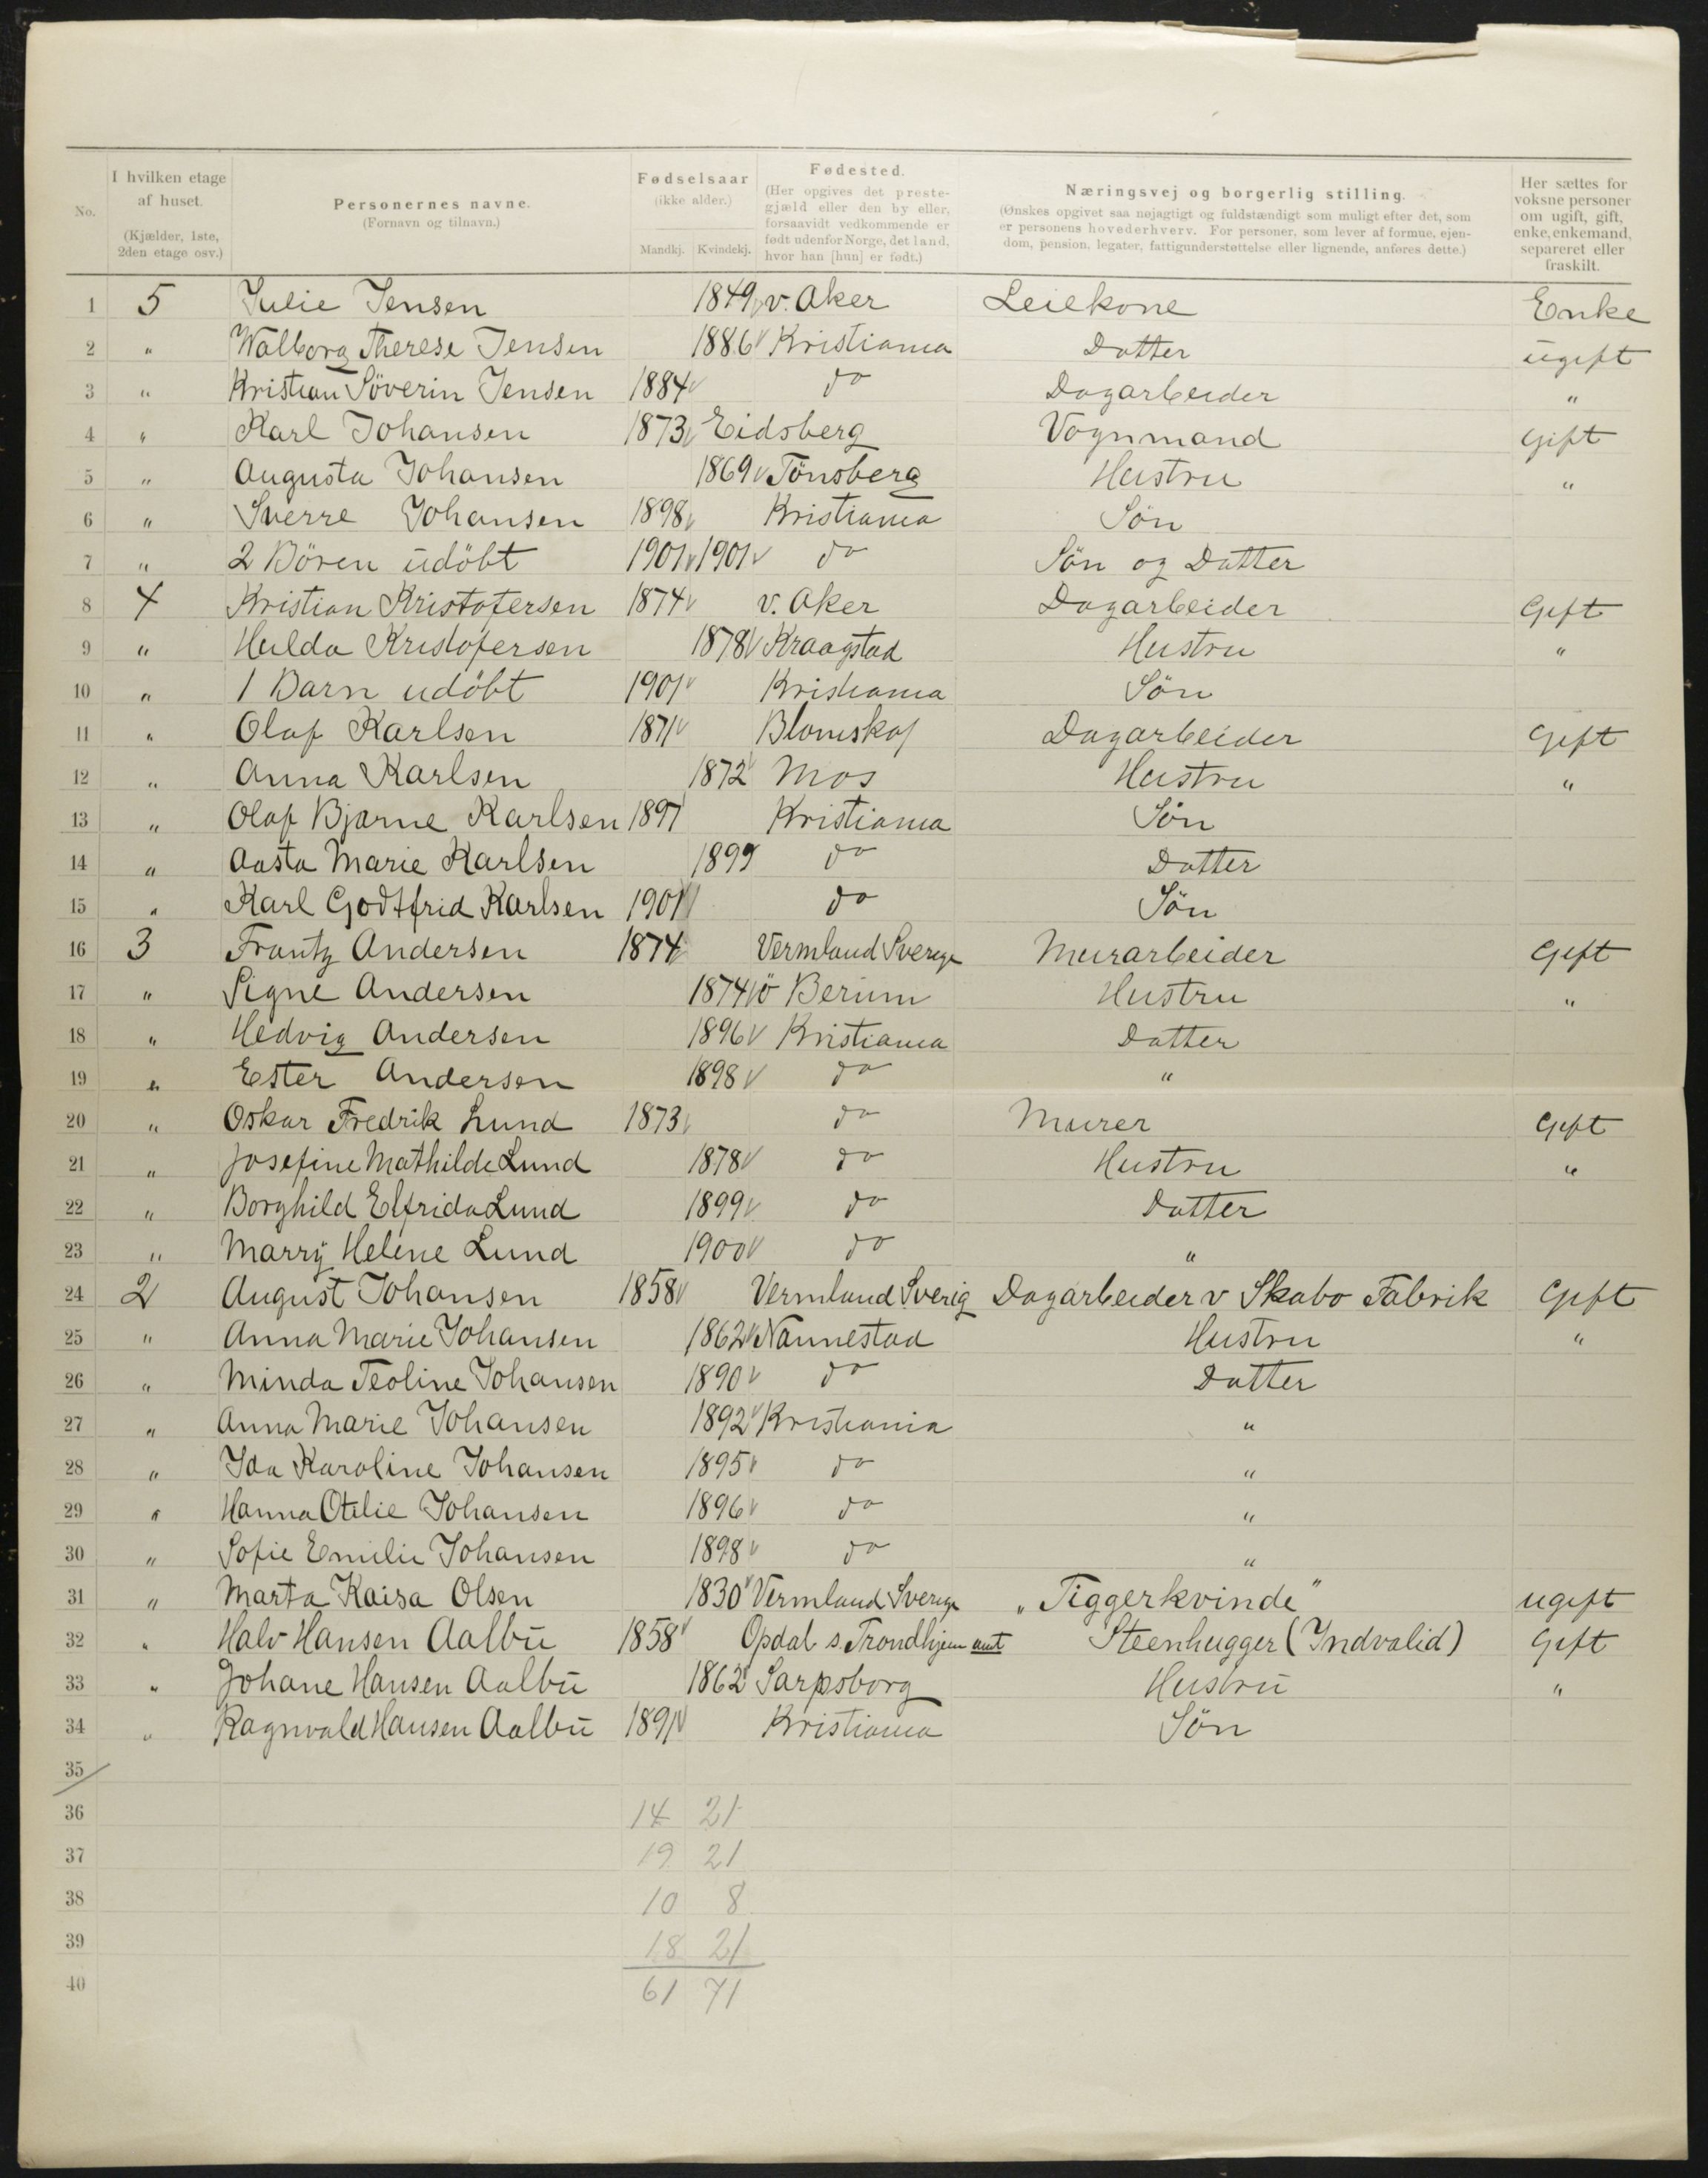 No. | I hvilken etage af huset. (Kjælder, 1ste, 2den etage osv.) | Personernes navne. (Fornavn og tilnavn.) | Fødselsaar (ikke alder.) Mandkj. Kvindekj. | Fødested. (Her opgives det prestegjæld eller den by eller, forsaavidt vedkommende er født udenfor Norge, det land, hvor han [hun] er født.) | Næringsvej og borgerlig stilling. (Ønskes opgivet saa nøjagtigt og fuldstændigt som muligt efter det, som er personens hovederhverv. For personer, som lever af formue, ejendom, pension, legater, fattigunderstøttelse eller lignende, anføres dette.) | Her sættes for voksne personer om ugift, gift, enke, enkemand, separeret eller fraskilt.
1 5 Julie Jensen 1849 v. Aker Leiekone Enke
2 " Walborg Therese Jensen 1886 Kristiania Datter ugift
3 " Kristian Söverin Jensen 1884 do Dagarbeider "
4 " Karl Johansen 1873 Eidsberg Vognmand Gift
5 " Augusta Johansen 1869 Tönsberg Hustru "
6 " Sverre Johansen 1898 Kristiania Sön
7 " 2 Bören udöbt 1901 1901 do Sön og Datter
8 4 Kristian Kristofersen 1874 v. Aker Dagarbeider Gift
9 " Hulda Kristofersen 1878 Kraagstad Hustru "
10 " 1 Barn udöbt 1901 Kristiania Sön
11 " Olaf Karlsen 1871 Blomskof Dagarbeider Gift
12 " Anna Karlsen 1872 Mos Hustru "
13 " Olaf Bjarne Karlsen 1897 Kristiania Sön
14 " Aasta Marie Karlsen 1899 do Datter
15 " Karl Godtfrid Karlsen 1901 do Sön
16 3 Frantz Andersen 1874 Vermland Sverge Murarbeider Gift
17 " Signe Andersen 1874 ö Berum Hustru "
18 " Hedvig Andersen 1896 Kristiania Datter
19 " Ester Andersen 1898 do "
20 " Oskar Fredrik Lund 1873 do Murer Gift
21 " Josefine Mathilde Lund 1878 do Hustru "
22 " Borghild Elfrida Lund 1899 do Datter
23 " Marry Helene Lund 1900 do "
24 2 August Johansen 1858 Vermland Sverig Dagarbeider v Skabo Fabrik Gift
25 " Anna Marie Johansen 1862 Nannestad Hustru "
26 " Minda Teoline Johansen 1890 do Datter
27 " Anna Marie Johansen 1892 Kristiania "
28 " Ida Karoline Johansen 1895 do "
29 " Hanna Otelie Johansen 1896 do "
30 " Sofie Emilie Johansen 1898 do "
31 " Marta Kaisa Olsen 1830 Vermland Sverge „Tiggerkvinde" ugift
32 " Halv Hansen Aalbu 1858 Opdal s. Trondhjem amt Steenhugger (Indvalid) Gift
33 " Johane Hansen Aalbu 1862 Sarpsborg Hustru "
34 " Ragnvald Hansen Aalbu 1891 Kristiania Sön
35
36 14 21
37 19 21
38 10 8
39 18 21
40 61 71